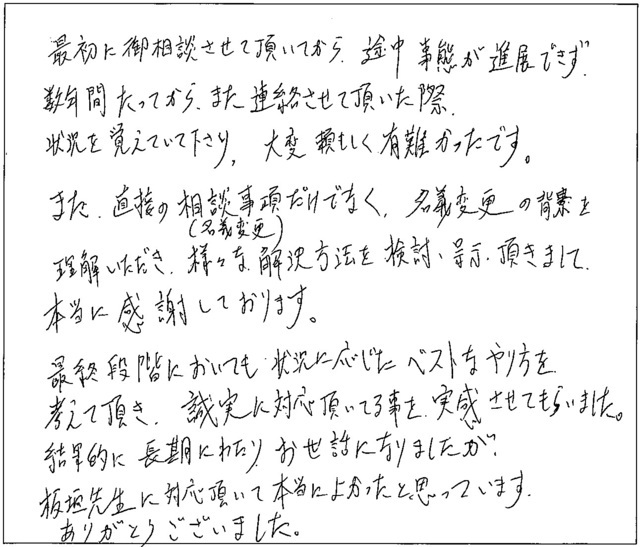 最初に御相談させて頂いてから、途中 事態が進展できず、
数年間たってから、また連絡させて頂いた際、
状況を覚えていて下さり、大変頼もしく有難かったです。
また、直接の相談事項だけでなく、名義変更の背景を
(名義変更)
理解いただき、様々な解決方法を検討、呈示、頂きまして、
本当に感謝しております。
最終段階においても状況に応じたベストなやり方を
考えて頂き、誠実に対応頂いてる事を、実感させてもらいました。
結果的に長期にわたり、お世話になりましたが、
板垣先生に対応頂いて本当によかったと思っています。
ありがとうございました。